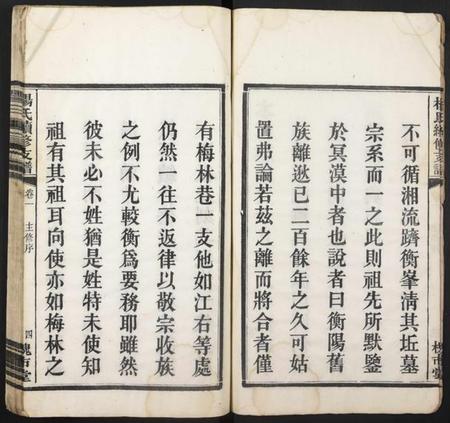 不可循湘流躋衡峯清其坵墓
宗系而一之此則祖先所默鑒
於冥漠中者也說者曰衡陽舊
族離逖已二百餘年之久可姑
置弗論若茲之離而將合者僅
有梅林巷一支他如江右等處
仍然一往不返律以敬宗收族
之例不尤較衡為要務耶雖然
彼未必不姓猶是姓特未使知
祖有其祖耳向使亦如梅林之
楊氏續修支譜
卷一
主修序
四